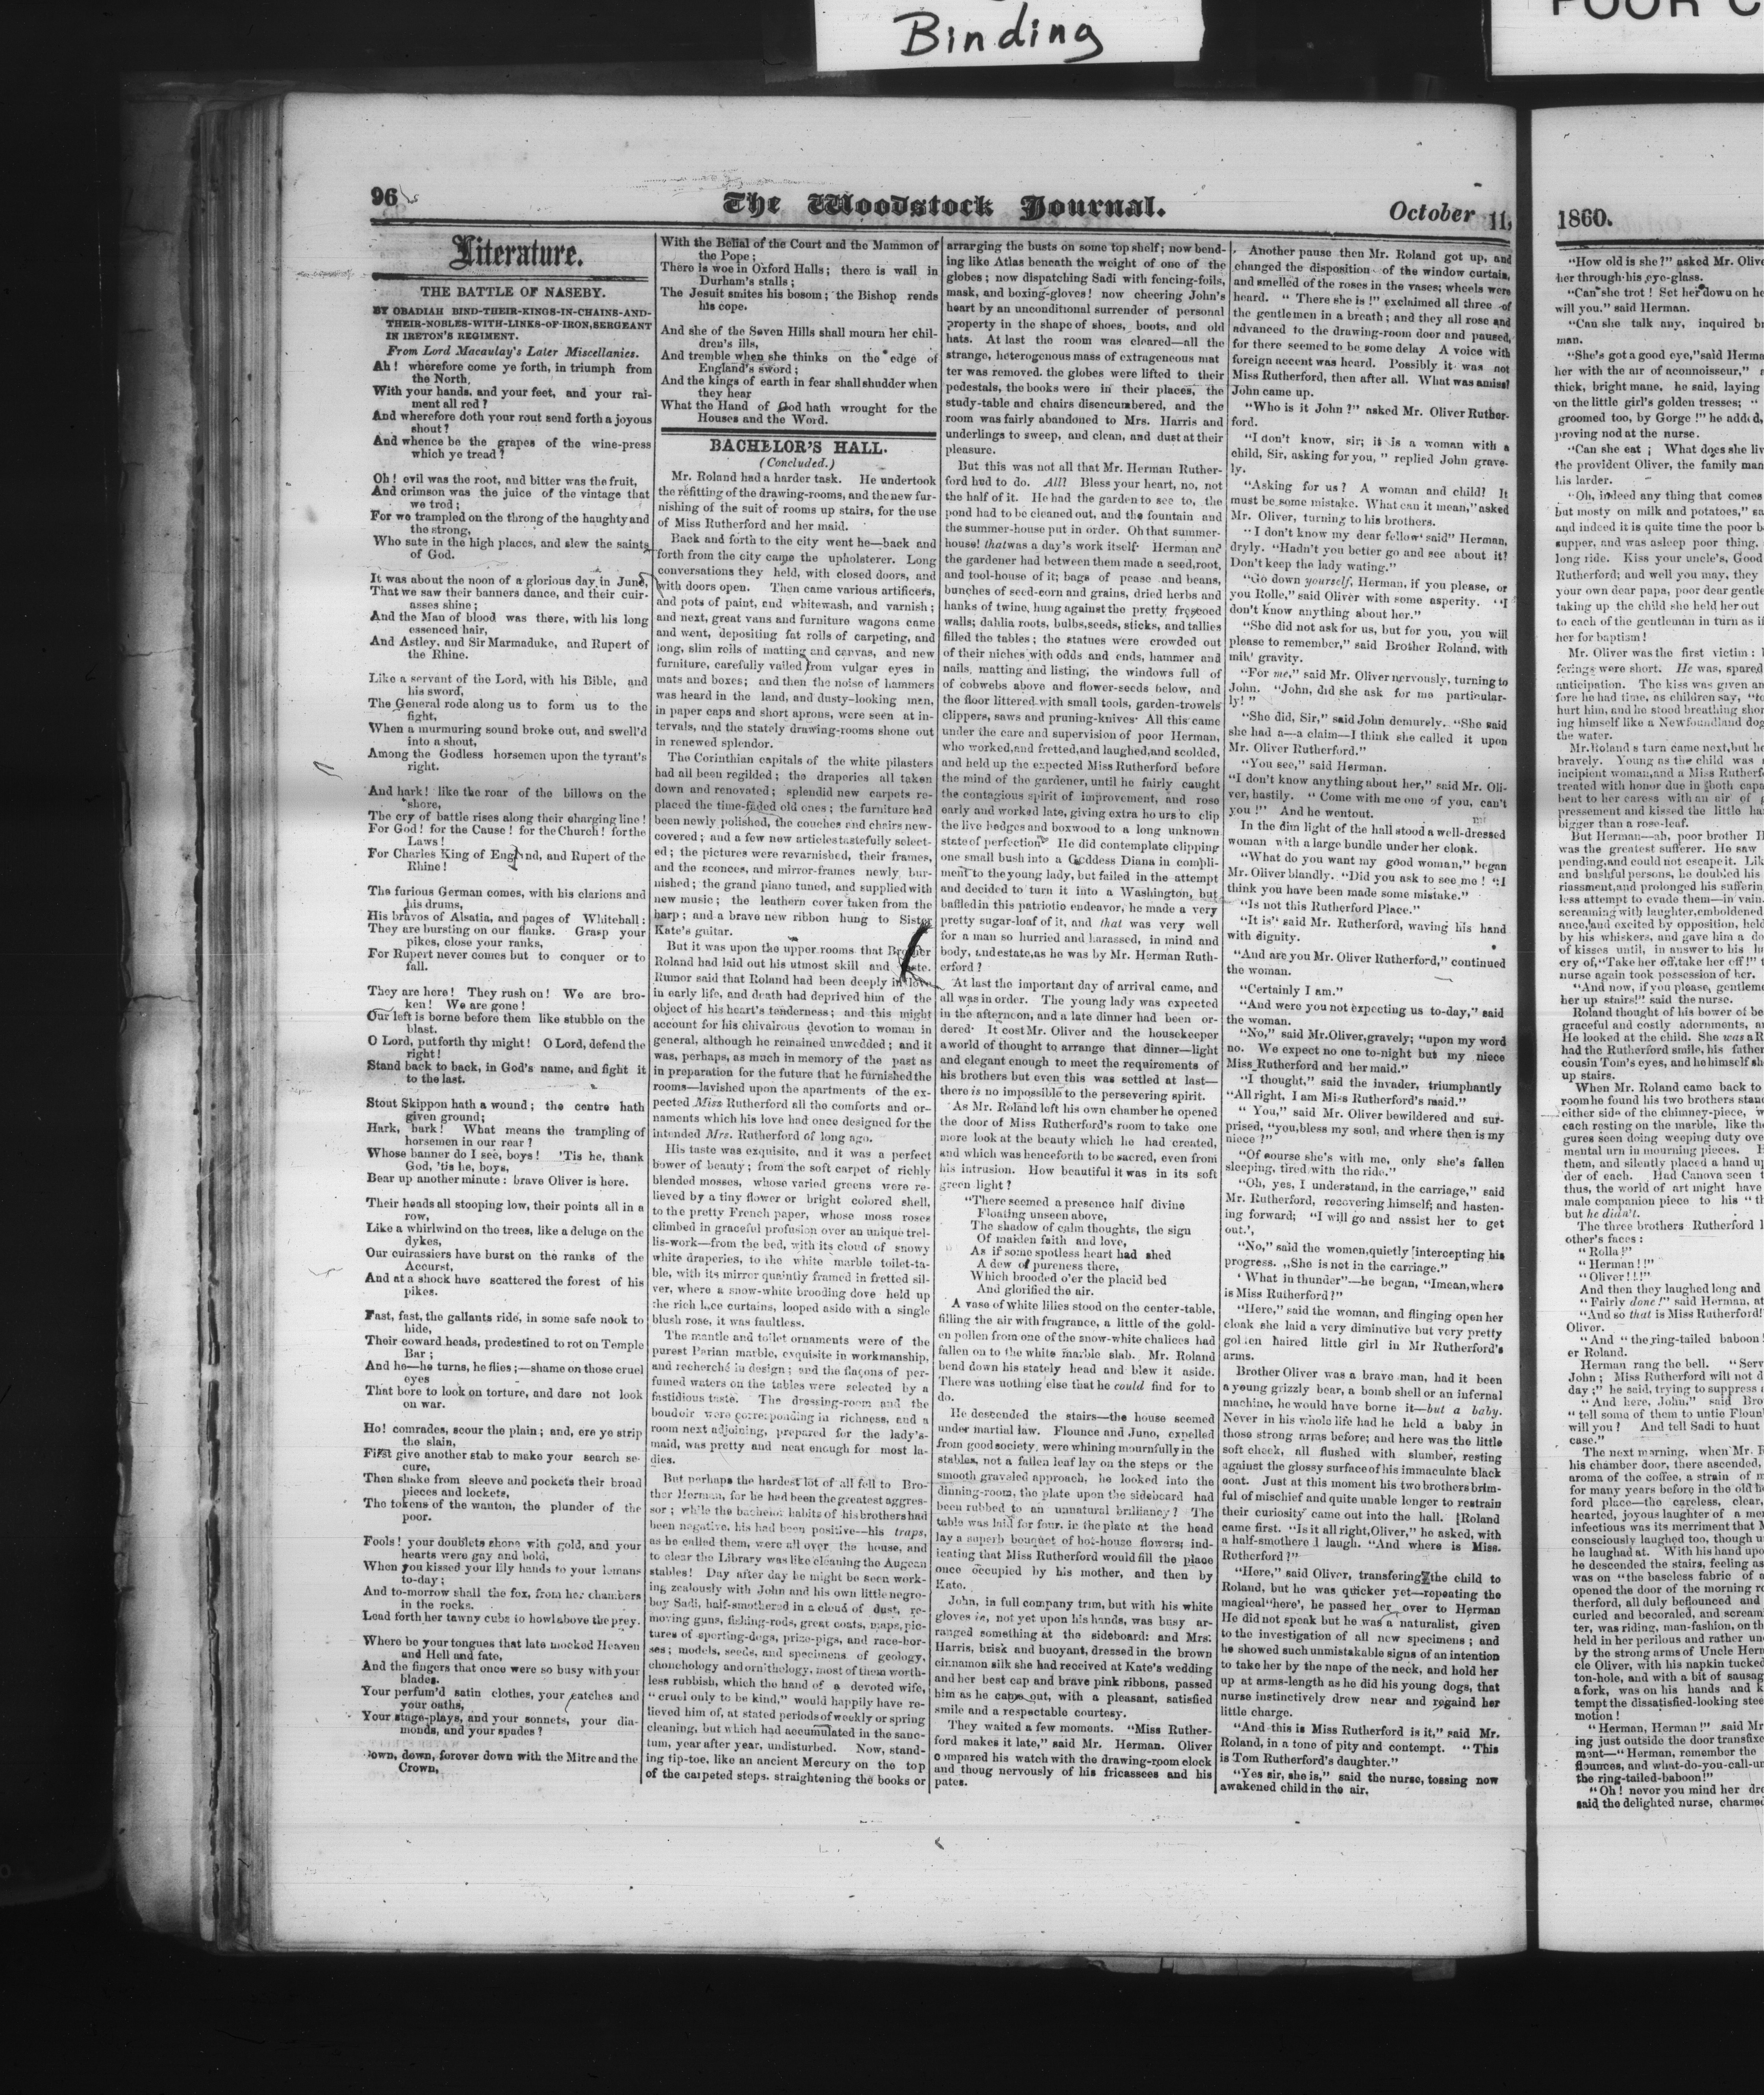 Binding
POOR C
96
The Woodstock Journal.
October 11,
Literature.
THE BATTLE OF NASEBY.
BY OBADIAH BIND-THEIR-KINGS-IN-CHAINS-AND-
THEIR-NOBLES-WITH-LINKS-OF-IRON,SERGEANT
IN IRETON'S REGIMENT.
From Lord Macaulay's Later Miscellanies.
Ah! wherefore come ye forth, in triumph from
the North,
With your hands, and your feet, and your rai-
ment all red?
And wherefore doth your rout send forth a joyous
shout?
And whence be the grapes of the wine-press
which ye tread?
Oh! evil was the root, and bitter was the fruit,
And crimson was the juice of the vintage that
we trod;
For we trampled on the throng of the haughty and
the strong,
Who sate in the high places, and slew the saints
of God.
It was about the noon of a glorious day in June,
That we saw their banners dance, and their cuir-
asses shine;
And the Man of blood was there, with his long
essenced hair,
And Astley, and Sir Marmaduke, and Rupert of
the Rhine.
Like a servant of the Lord, with his Bible, and
his sword,
The General rode along us to form us to the
fight,
When a murmuring sound broke out, and swell'd
into a shout,
Among the Godless horsemen upon the tyrant's
right.
And hark! like the roar of the billows on the
shore,
The cry of battle rises along their charging line!
For God! for the Cause! for the Church! for the
Laws!
For Charles King of England, and Rupert of the
Rhine!
The furious German comes, with his clarions and
his drums,
His bravos of Alsatia, and pages of Whitehall:
They are bursting on our flanks. Grasp your
pikes, close your ranks,
For Rupert never comes but to conquer or to
fall.
They are here! They rush on! We are bro-
ken! We are gone!
Our left is borne before them like stubble on the
blast.
O Lord, put forth thy might! O Lord, defend the
right!
Stand back to back, in God's name, and fight it
to the last.
Stout Skippon hath a wound; the centre hath
given ground;
Hark, hark! What means the trampling of
horsemen in our rear?
Whose banner do I see, boys! 'Tis he, thank
God, 'tis he, boys,
Bear up another minute: brave Oliver is here.
Their heads all stooping low, their points all in a
row,
Like a whirlwind on the trees, like a deluge on the
dykes,
Our cuirassiers have burst on the ranks of the
Accurst,
And at a shock have scattered the forest of his
pikes.
Fast, fast, the gallants ride, in some safe nook to
hide,
Their coward heads, predestined to rot on Temple
Bar;
And he—he turns, he flies;—shame on those cruel
eyes
That bore to look on torture, and dare not look
on war.
Ho! comrades, scour the plain; and, ere ye strip
the slain,
First give another stab to make your search se-
cure,
Then shake from sleeve and pockets their broad
pieces and lockets,
The tokens of the wanton, the plunder of the
poor.
Fools! your doublets shone with gold, and your
hearts were gay and bold,
When you kissed your lily hands to your lemans
to-day;
And to-morrow shall the fox, from her chambers
in the rocks.
Lead forth her tawny cubs to howl above the prey.
Where be your tongues that late mocked Heaven
and Hell and fate,
And the fingers that once were so busy with your
blades.
Your perfum'd satin clothes, your catches and
your oaths,
Your stage-plays, and your sonnets, your dia-
monds, and your spades?
down, down, forever down with the Mitre and the
Crown,
With the Belial of the Court and the Mammon of
the Pope;
There is woe in Oxford Halls; there is wail in
Durham's stalls;
The Jesuit smites his bosom; the Bishop rends
his cope.
And she of the Seven Hills shall mourn her chil-
dren's ills,
And tremble when she thinks on the edge of
England's sword;
And the kings of earth in fear shall shudder when
they hear
What the Hand of God hath wrought for the
Houses and the Word.
BACHELOR'S HALL.
(Concluded.)
Mr. Roland had a harder task. He undertook
the refitting of the drawing-rooms, and the new fur-
nishing of the suit of rooms up stairs, for the use
of Miss Rutherford and her maid.
Back and forth to the city went he—back and
forth from the city came the upholsterer. Long
conversations they held, with closed doors, and
with doors open. Then came various artificers,
and pots of paint, and whitewash, and varnish;
and next, great vans and furniture wagons came
and went, depositing fat rolls of carpeting, and
long, slim rolls of matting and canvas, and new
furniture, carefully vailed from vulgar eyes in
mats and boxes; and then the noise of hammers
was heard in the land, and dusty-looking men,
in paper caps and short aprons, were seen at in-
tervals, and the stately drawing-rooms shone out
in renewed splendor.
The Corinthian capitals of the white pilasters
had all been regilded; the draperies all taken
down and renovated; splendid new carpets re-
placed the time-faded old ones; the furniture had
been newly polished, the couches and chairs new-
covered; and a few new articles tastefully select-
ed; the pictures were revarnished, their frames,
and the sconces, and mirror-frames newly bur-
nished; the grand piano tuned, and supplied with
new music; the leathern cover taken from the
harp; and a brave new ribbon hung to Sister
Kate's guitar.
But it was upon the upper rooms that Brother
Roland had laid out his utmost skill and taste.
Rumor said that Roland had been deeply in love
in early life, and death had deprived him of the
object of his heart's tenderness; and this might
account for his chivalrous devotion to woman in
general, although he remained unwedded; and it
was, perhaps, as much in memory of the past as
in preparation for the future that he furnished the
rooms—lavished upon the apartments of the ex-
pected Miss Rutherford all the comforts and or-
naments which his love had once designed for the
intended Mrs. Rutherford of long ago.
His taste was exquisite, and it was a perfect
bower of beauty; from the soft carpet of richly
blended mosses, whose varied greens were re-
lieved by a tiny flower or bright colored shell,
to the pretty French paper, whose moss roses
climbed in graceful profusion over an unique trel-
lis-work—from the bed, with its cloud of snowy
white draperies, to the white marble toilet-ta-
ble, with its mirror quaintly framed in fretted sil-
ver, where a snow-white brooding dove held up
the rich lace curtains, looped aside with a single
blush rose, it was faultless.
The mantle and toilet ornaments were of the
purest Parian marble, exquisite in workmanship,
and recherché in design; and the flaçons of per-
fumed waters on the tables were selected by a
fastidious taste. The dressing-room and the
boudoir were corresponding in richness, and a
room next adjoining, prepared for the lady's-
maid, was pretty and neat enough for most la-
dies.
But perhaps the hardest lot of all fell to Bro-
ther Herman, for he had been the greatest aggres-
sor; while the bachelor habits of his brothers had
been negative, his had been positive—his traps,
as he called them, were all over the house, and
to clear the Library was like cleaning the Augean
stables! Day after day he might be seen work-
ing zealously with John and his own little negro-
boy Sadi, half-smothered in a cloud of dust, re-
moving guns, fishing-rods, great coats, maps, pic-
tures of sporting-dogs, prize-pigs, and race-hor-
ses; models, seeds, and specimens of geology,
chonchology and ornithology, most of them worth-
less rubbish, which the hand of a devoted wife,
"cruel only to be kind," would happily have re-
lieved him of, at stated periods of weekly or spring
cleaning, but which had accumulated in the sanc-
tum, year after year, undisturbed. Now, stand-
ing tip-toe, like an ancient Mercury on the top
of the carpeted steps. straightening the books or
arrarging the busts on some top shelf; now bend-
ing like Atlas beneath the weight of one of the
globes; now dispatching Sadi with fencing-foils,
mask, and boxing-gloves! now cheering John's
heart by an unconditional surrender of personal
property in the shape of shoes, boots, and old
hats. At last the room was cleared—all the
strange, heterogenous mass of extrageneous mat
ter was removed. the globes were lifted to their
pedestals, the books were in their places, the
study-table and chairs disencumbered, and the
room was fairly abandoned to Mrs. Harris and
underlings to sweep, and clean, and dust at their
pleasure.
But this was not all that Mr. Herman Ruther-
ford had to do. All? Bless your heart, no, not
the half of it. He had the garden to see to, the
pond had to be cleaned out, and the fountain and
the summer-house put in order. Oh that summer-
house! that was a day's work itself Herman and
the gardener had between them made a seed, root,
and tool-house of it; bags of pease and beans,
bunches of seed-corn and grains, dried herbs and
hanks of twine, hung against the pretty frescoed
walls; dahlia roots, bulbs, seeds, sticks, and tallies
filled the tables; the statues were crowded out
of their niches with odds and ends, hammer and
nails, matting and listing, the windows full of
of cobwebs above and flower-seeds below, and
the floor littered with small tools, garden-trowels
clippers, saws and pruning-knives All this came
under the care and supervision of poor Herman,
who worked, and fretted, and laughed, and scolded,
and held up the expected Miss Rutherford before
the mind of the gardener, until he fairly caught
the contagious spirit of improvement, and rose
early and worked late, giving extra hours to clip
the live hedges and boxwood to a long unknown
state of perfection He did contemplate clipping
one small bush into a Goddess Diana in compli-
ment to the young lady, but failed in the attempt
and decided to turn it into a Washington, but
baffled in this patriotic endeavor, he made a very
pretty sugar-loaf of it, and that was very well
for a man so hurried and harassed, in mind and
body, and estate, as he was by Mr. Herman Ruth-
erford?
At last the important day of arrival came, and
all was in order. The young lady was expected
in the afternoon, and a late dinner had been or-
dered It cost Mr. Oliver and the housekeeper
a world of thought to arrange that dinner—light
and elegant enough to meet the requirements of
his brothers but even this was settled at last—
there is no impossible to the persevering spirit.
As Mr. Roland left his own chamber he opened
the door of Miss Rutherford's room to take one
more look at the beauty which he had created,
and which was henceforth to be sacred, even from
his intrusion. How beautiful it was in its soft
green light?
"There seemed a presence half divine
Floating unseen above,
The shadow of calm thoughts, the sign
Of maiden faith and love,
As if some spotless heart had shed
A dew of pureness there,
Which brooded o'er the placid bed
And glorified the air.
A vase of white lilies stood on the center-table,
filling the air with fragrance, a little of the gold-
en pollen from one of the snow-white chalices had
fallen on to the white marble slab. Mr. Roland
bend down his stately head and blew it aside.
There was nothing else that he could find for to
do.
He descended the stairs—the house seemed
under martial law. Flounce and Juno, expelled
from good society, were whining mournfully in the
stables, not a fallen leaf lay on the steps or the
smooth graveled approach, he looked into the
dinning-room, the plate upon the sideboard had
been rubbed to an unnatural brilliancy? The
table was laid for four. in the plate at the head
lay a superb bouquet of hot-house flowers; ind-
icating that Miss Rutherford would fill the place
once occupied by his mother, and then by
Kate.
John, in full company trim, but with his white
gloves in, not yet upon his hands, was busy ar-
ranged something at the sideboard: and Mrs.
Harris, brisk and buoyant, dressed in the brown
cinnamon silk she had received at Kate's wedding
and her best cap and brave pink ribbons, passed
him as he came out, with a pleasant, satisfied
smile and a respectable courtesy.
They waited a few moments. "Miss Ruther-
ford makes it late," said Mr. Herman. Oliver
compared his watch with the drawing-room clock
and thoug nervously of his fricassees and his
pates.
Another pause then Mr. Roland got up, and
changed the disposition of the window curtain,
and smelled of the roses in the vases; wheels were
heard. "There she is!" exclaimed all three of
the gentlemen in a breath; and they all rose and
advanced to the drawing-room door and paused,
for there seemed to be some delay A voice with
foreign accent was heard. Possibly it was not
Miss Rutherford, then after all. What was amiss?
John came up.
"Who is it John?" asked Mr. Oliver Ruther-
ford.
"I don't know, sir; it is a woman with a
child, Sir, asking for you," replied John grave-
ly.
"Asking for us? A woman and child? It
must be some mistake. What can it mean," asked
Mr. Oliver, turning to his brothers.
"I don't know my dear fellow' said" Herman,
dryly. "Hadn't you better go and see about it?
Don't keep the lady wating."
"Go down yourself, Herman, if you please, or
you Rolle," said Oliver with some asperity. "I
don't know anything about her."
"She did not ask for us, but for you, you will
please to remember," said Brother Roland, with
milk' gravity.
"For me," said Mr. Oliver nervously, turning to
John. "John, did she ask for me particular-
ly!"
"She did, Sir," said John demurely. "She said
she had a—a claim—I think she called it upon
Mr. Oliver Rutherford."
"You see," said Herman.
"I don't know anything about her," said Mr. Oli-
ver, hastily. "Come with me one of you, can't
you!" And he went out.
In the dim light of the hall stood a well-dressed
woman with a large bundle under her cloak.
"What do you want my good woman," began
Mr. Oliver blandly. "Did you ask to see me! "I
think you have been made some mistake."
"Is not this Rutherford Place."
"It is" said Mr. Rutherford, waving his hand
with dignity.
"And are you Mr. Oliver Rutherford," continued
the woman.
"Certainly I am."
"And were you not expecting us to-day," said
the woman.
"No," said Mr. Oliver, gravely; "upon my word
no. We expect no one to-night but my niece
Miss Rutherford and her maid."
"I thought," said the invader, triumphantly
"All right, I am Miss Rutherford's maid."
"You," said Mr. Oliver bewildered and sur-
prised, "you, bless my soul, and where then is my
niece?"
"Of course she's with me, only she's fallen
sleeping, tired with the ride."
"Oh, yes, I understand, in the carriage," said
Mr. Rutherford, recovering himself; and hasten-
ing forward; "I will go and assist her to get
out.',
"No," said the women, quietly intercepting his
progress. ,,She is not in the carriage."
'What in thunder"—he began, "I mean, where
is Miss Rutherford?"
"Here," said the woman, and flinging open her
cloak she laid a very diminutive but very pretty
golden haired little girl in Mr Rutherford's
arms.
Brother Oliver was a brave man, had it been
a young grizzly bear, a bomb shell or an infernal
machine, he would have borne it—but a baby.
Never in his whole life had he held a baby in
those strong arms before; and here was the little
soft cheek, all flushed with slumber, resting
against the glossy surface of his immaculate black
coat. Just at this moment his two brothers brim-
ful of mischief and quite unable longer to restrain
their curiosity came out into the hall. [Roland
came first. "Is it all right, Oliver," he asked, with
a half-smothered laugh. "And where is Miss.
Rutherford?"
"Here," said Oliver, transfering the child to
Roland, but he was quicker yet—repeating the
magical "here', he passed her over to Herman
He did not speak but he was a naturalist, given
to the investigation of all new specimens; and
he showed such unmistakable signs of an intention
to take her by the nape of the neck, and hold her
up at arms-length as he did his young dogs, that
nurse instinctively drew near and regaind her
little charge.
"And this is Miss Rutherford is it," said Mr.
Roland, in a tone of pity and contempt. "This
is Tom Rutherford's daughter."
"Yes sir, she is," said the nurse, tossing now
awakened child in the air,
1860.
"How old is she?" asked Mr. Olive
her through his eye-glass.
"Can she trot! Set her down on he
will you." said Herman.
"Can she talk any, inquired br
man.
"She's got a good eye," said Herma
her with the air of aconnoisseur,"
thick, bright mane, he said, laying
on the little girl's golden tresses; "
groomed too, by Gorge!" he added,
proving nod at the nurse.
"Can she eat; What does she liv
the provident Oliver, the family man
his larder.
"Oh, indeed any thing that comes
but mosty on milk and potatoes," sa
and indeed it is quite time the poor b
supper, and was asleep poor thing.
long ride. Kiss your uncle's, Good
Rutherford; and well you may, they
your own dear papa, poor dear gentle
taking up the child she held her out
to each of the gentleman in turn as if
her for baptism!
Mr. Oliver was the first victim:
ferings were short. He was, spared
anticipation. The kiss was given an
fore he had time, as children say, "to
hurt him, and he stood breathing shor
ing himself like a Newfoundland dog
the water.
Mr. Roland s turn came next, but he
bravely. Young as the child was
incipient woman, and a Miss Rutherf
treated with honor due in both capa
bent to her caress with an air of
pressement and kissed the little ha
bigger than a rose-leaf.
But Herman—ah, poor brother H
was the greatest sufferer. He saw
pending, and could not escape it. Lik
and bashful persons, he doubled his
riassment, and prolonged his sufferin
less attempt to evade them—in vain.
screaming with laughter, emboldened
ance, and excited by opposition, held
by his whiskers, and gave him a do
of kisses until, in answer to his
cry of, "Take her off, take her off!"
nurse again took possession of her.
"And now, if you please, gentleme
her up stairs!" said the nurse.
Roland thought of his bower of be
graceful and costly adornments, a
He looked at the child. She was a R
had the Rutherford smile, his father
cousin Tom's eyes, and he himself sh
up stairs.
When Mr. Roland came back to
room he found his two brothers stan
either side of the chimney-piece, w
each resting on the marble, like th
gures seen doing weeping duty ove
mental urn in mourning pieces. H
them, and silently placed a hand u
der of each. Had Canova seen t
thus, the world of art might have
male companion piece to his "th
but he didn't.
The three brothers Rutherford l
other's faces:
"Rolla!"
"Herman!!"
"Oliver!!!"
And then they laughed long and
"Fairly done!" said Herman, at
"And so that is Miss Rutherford!
Oliver.
"And "the ring-tailed baboon
er Roland.
Herman rang the bell. "Serv
John; Miss Rutherford will not d
day;" he said, trying to suppress
"And here, John," said Bro
"tell some of them to untie Floun
will you? And tell Sadi to hunt
case."
The next morning, when Mr. R
his chamber door, there ascended,
aroma of the coffee, a strain of m
for many years before in the old h
ford place—the careless, clear,
hearted, joyous laughter of a mer
infectious was its merriment that M
consciously laughed too, though u
he laughad at. With his hand upo
he descended the stairs, feeling as
was on "the baseless fabric of a
opened the door of the morning r
therford, all duly beflounced and
curled and becoraled, and scream
ter, was riding, man-fashion, on th
held in her perilous and rather un
by the strong arms of Uncle Herm
cle Oliver, with his napkin tucked
ton-hole, and with a bit of sausag
a fork, was on his hands and k
tempt the dissatisfied-looking stee
motion!
"Herman, Herman!" said Mr
ing just outside the door transfixe
mant—"Herman, remember the
flounces, and what-do-you-call-u
the ring-tailed-baboon!"
"Oh! never you mind her dre
said the delighted nurse, charmed